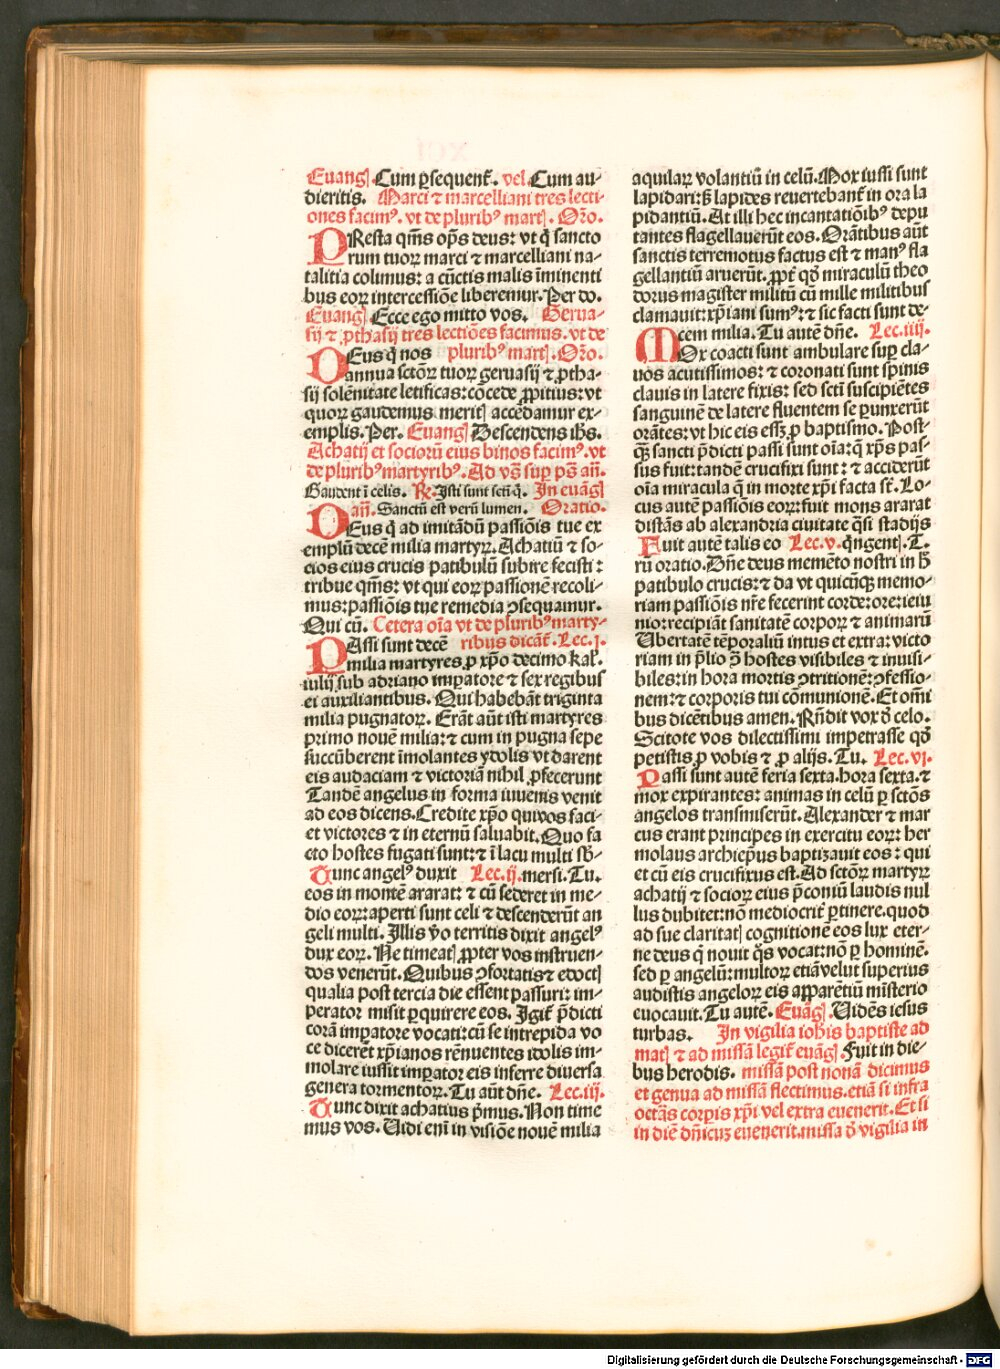 Euangꝭ Cum ꝑsequent̃. vel Cum au-
dieritis. Marci ⁊ marcelliani tres lecti-
ones facimꝰ. vt de pluribꝰ martꝭ. Oro.
PResta qm̃s op̃s deus: vt q̇ sancto
rum tuoꝝ marci ⁊ marcelliani na-
talitia colimus: a cūctis malis īminenti
bus eoꝝ intercessiōe liberemur. Per do.
Euangꝭ Ecce ego mitto vos. Gerua-
sij ⁊ ꝓthasij tres lectiōes facimus. vt de
DEus q̇ nos pluribꝰ martꝭ. Oro.
annua sctōꝝ tuoꝝ geruasij ⁊ ꝓtha-
sij solēnitate letificas: cōcede ꝓpitius: vt
quoꝝ gaudemus meritꝭ accēdamur ex-
emplis. Per. Euangꝭ Descendens ihs.
Achatij et socioꝝ eius binos facimꝰ. vt
de pluribꝰ martyribꝰ. Ad vs̃ suꝑ ps̃ añ.
Gaudent ī celis. ℞. Isti sunt scti q̇. In euāgꝭ
añ. Sanctū est verū lumen. Oratio.
DEus q̇ ad imitādū passiōis tue ex
emplū decē milia martyrꝝ. Achatiū ⁊ so-
cios eius crucis patibulū subire fecisti:
tribue qm̃s: vt qui eoꝝ passionē recoli-
mus: passiōis tue remedia ꝯsequamur.
Qui cū. Cetera oīa vt de pluribꝰ marty-
PAssi sunt decē ribus dicāt. Lec. j.
milia martyres ꝓ xp̃o decimo kal'.
iulij sub adriano imꝑatore ⁊ sex regibus
ei auxiliantibus. Qui habebāt triginta
milia pugnatoꝝ. Erāt aūt isti martyres
primo nouē milia: ⁊ cum in pugna sepe
succūberent īmolantes ydolis vt darent
eis audaciam ⁊ victoriā nihil ꝓfecerunt
Tandē angelus in forma iuuenis venit
ad eos dicens. Credite xp̃o qui vos faci-
et victores ⁊ in eternū saluabit. Quo fa
cto hostes fugati sunt: ⁊ ī lacu multi sb̄-
Tunc angelꝰ duxit Lec. ij. mersi. Tu.
eos in montē ararat: ⁊ cū sederet in me-
dio eoꝝ: aperti sunt celi ⁊ descenderūt an
geli multi. Illis v̄o territis dixit angelꝰ
dux eoꝝ. Ne timeatꝭ ꝓpter vos instruen-
dos venerūt. Quibus ꝯfortatis ⁊ edoctꝭ
qualia post tercia die essent passuri: im-
perator misit ꝑquirere eos. Igit̃ p̄dicti
corā imꝑatore vocati: cū se intrepida vo
ce diceret xp̄ianos rēnuentes idolis im-
molare iussit imꝑator eis inferre diuersa
genera tormentoꝝ. Tu aūt dn̄e. Lec. iij.
Tunc dixit achatius p̄mus. Non time
mus vos. Uidi enī in visiōe nouē milia
aquilaꝝ volantiū in celū. Mox iussi sunt
lapidari: s̄ lapides reuertebant̃ in ora la
pidantiū. At illi hec incantatiōibꝰ depu
tantes flagellauerūt eos. Orātibus aūt
sanctis terremotus factus est ⁊ manꝰ fla
gellantiū aruerūt. ꝓpt̃ qđ miraculū theo
dorus magister militū cū mille militibus
clamauit: xp̄iani sumꝰ: ⁊ sic facti sunt de-
cem milia. Tu autē dn̄e. Lec. iiij.
MOx coacti sunt ambulare suꝑ cla-
uos acutissimos: ⁊ coronati sunt spinis
clauis in latere fixis: sed scti suscipiētes
sanguinē de latere fluentem se ꝑunxerūt
orātes: vt hic eis esset ꝓ baptismo. Post-
qꝫ sancti p̄dicti passi sunt oīa: q̄ xp̄s pas-
sus fuit: tandē crucifixi sunt: ⁊ acciderūt
oīa miracula q̄ in morte xp̄i facta sť. Lo-
cus autē passiōis eoꝝ: fuit mons ararat
distās ab alexandria ciuitate q̄si stadijs
Fuit autē talis eo Lec. v. q̇ngentꝭ. T.
rū oratio. Dn̄e deus memēto nostri in h̄
patibulo crucis: ⁊ da vt quicūqꝫ memo-
riam passiōis nr̄e fecerint corde: ore: ieiu
nio: recipiāt sanitatē corpoꝝ ⁊ animarū
Ubertatē tēporaliū intus et extra: victo
riam in p̄lio ꝯ̄ hostes visibiles ⁊ inuisi-
biles: in hora mortis ꝯtritionē: ꝯfessio-
nem: ⁊ corporis tui cōmunionē. Et om̄i
bus dicētibus amen. Rn̄dit vox đ celo.
Scitote vos dilectissimi impetrasse qđ
petistis ꝓ vobis ⁊ ꝓ alijs. Tu. Lec. vj.
Passi sunt autē feria sexta. hora sexta. ⁊
mox expirantes: animas in celū ꝑ sctōs
angelos transmiserūt. Alexander ⁊ mar
cus erant principes in exercitu eoꝝ: her
molaus archiep̄us baptizauit eos: qui
et cū eis crucifixus est. Ad sctōꝝ martyꝝ
achatij ⁊ socioꝝ eius p̄coniū laudis nul
lus dubitet: nō mediocrit̃ ꝑtinere. quod
ad sue claritatꝭ cognitionē eos lux eter-
ne deus q̇ nouit q̇s vocat: nō ꝑ hominē.
sed ꝑ angelū: multoꝝ etiā velut superius
audistis angeloꝝ eis apparētiū mīsterio
euocauit. Tu autē. Euāgꝭ. Uidēs iesus
turbas. In vigilia ioh̄is baptiste ad
matꝭ ⁊ ad missā legit̃ euāgꝭ. Fuit in die-
bus herodis. missā post nonā dicimus
et genua ad missā flectimus. etiā si infra
octās corꝑis xp̄i vel extra euenerit. Et si
in diē dn̄icuꝫ euenerit. missa đ vigilia in
Digitalisierung gefördert durch die Deutsche Forschungsgemeinschaft - DFG